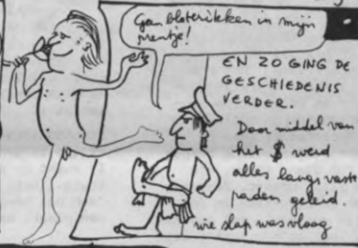 Gan bloterikken in mijn
prentje!
EN ZO GING DE
GESCHIEDENIS
VERDER.
Door middel van
het $ werd
alles langs vaste
paden geleid.
wie slap was vloog